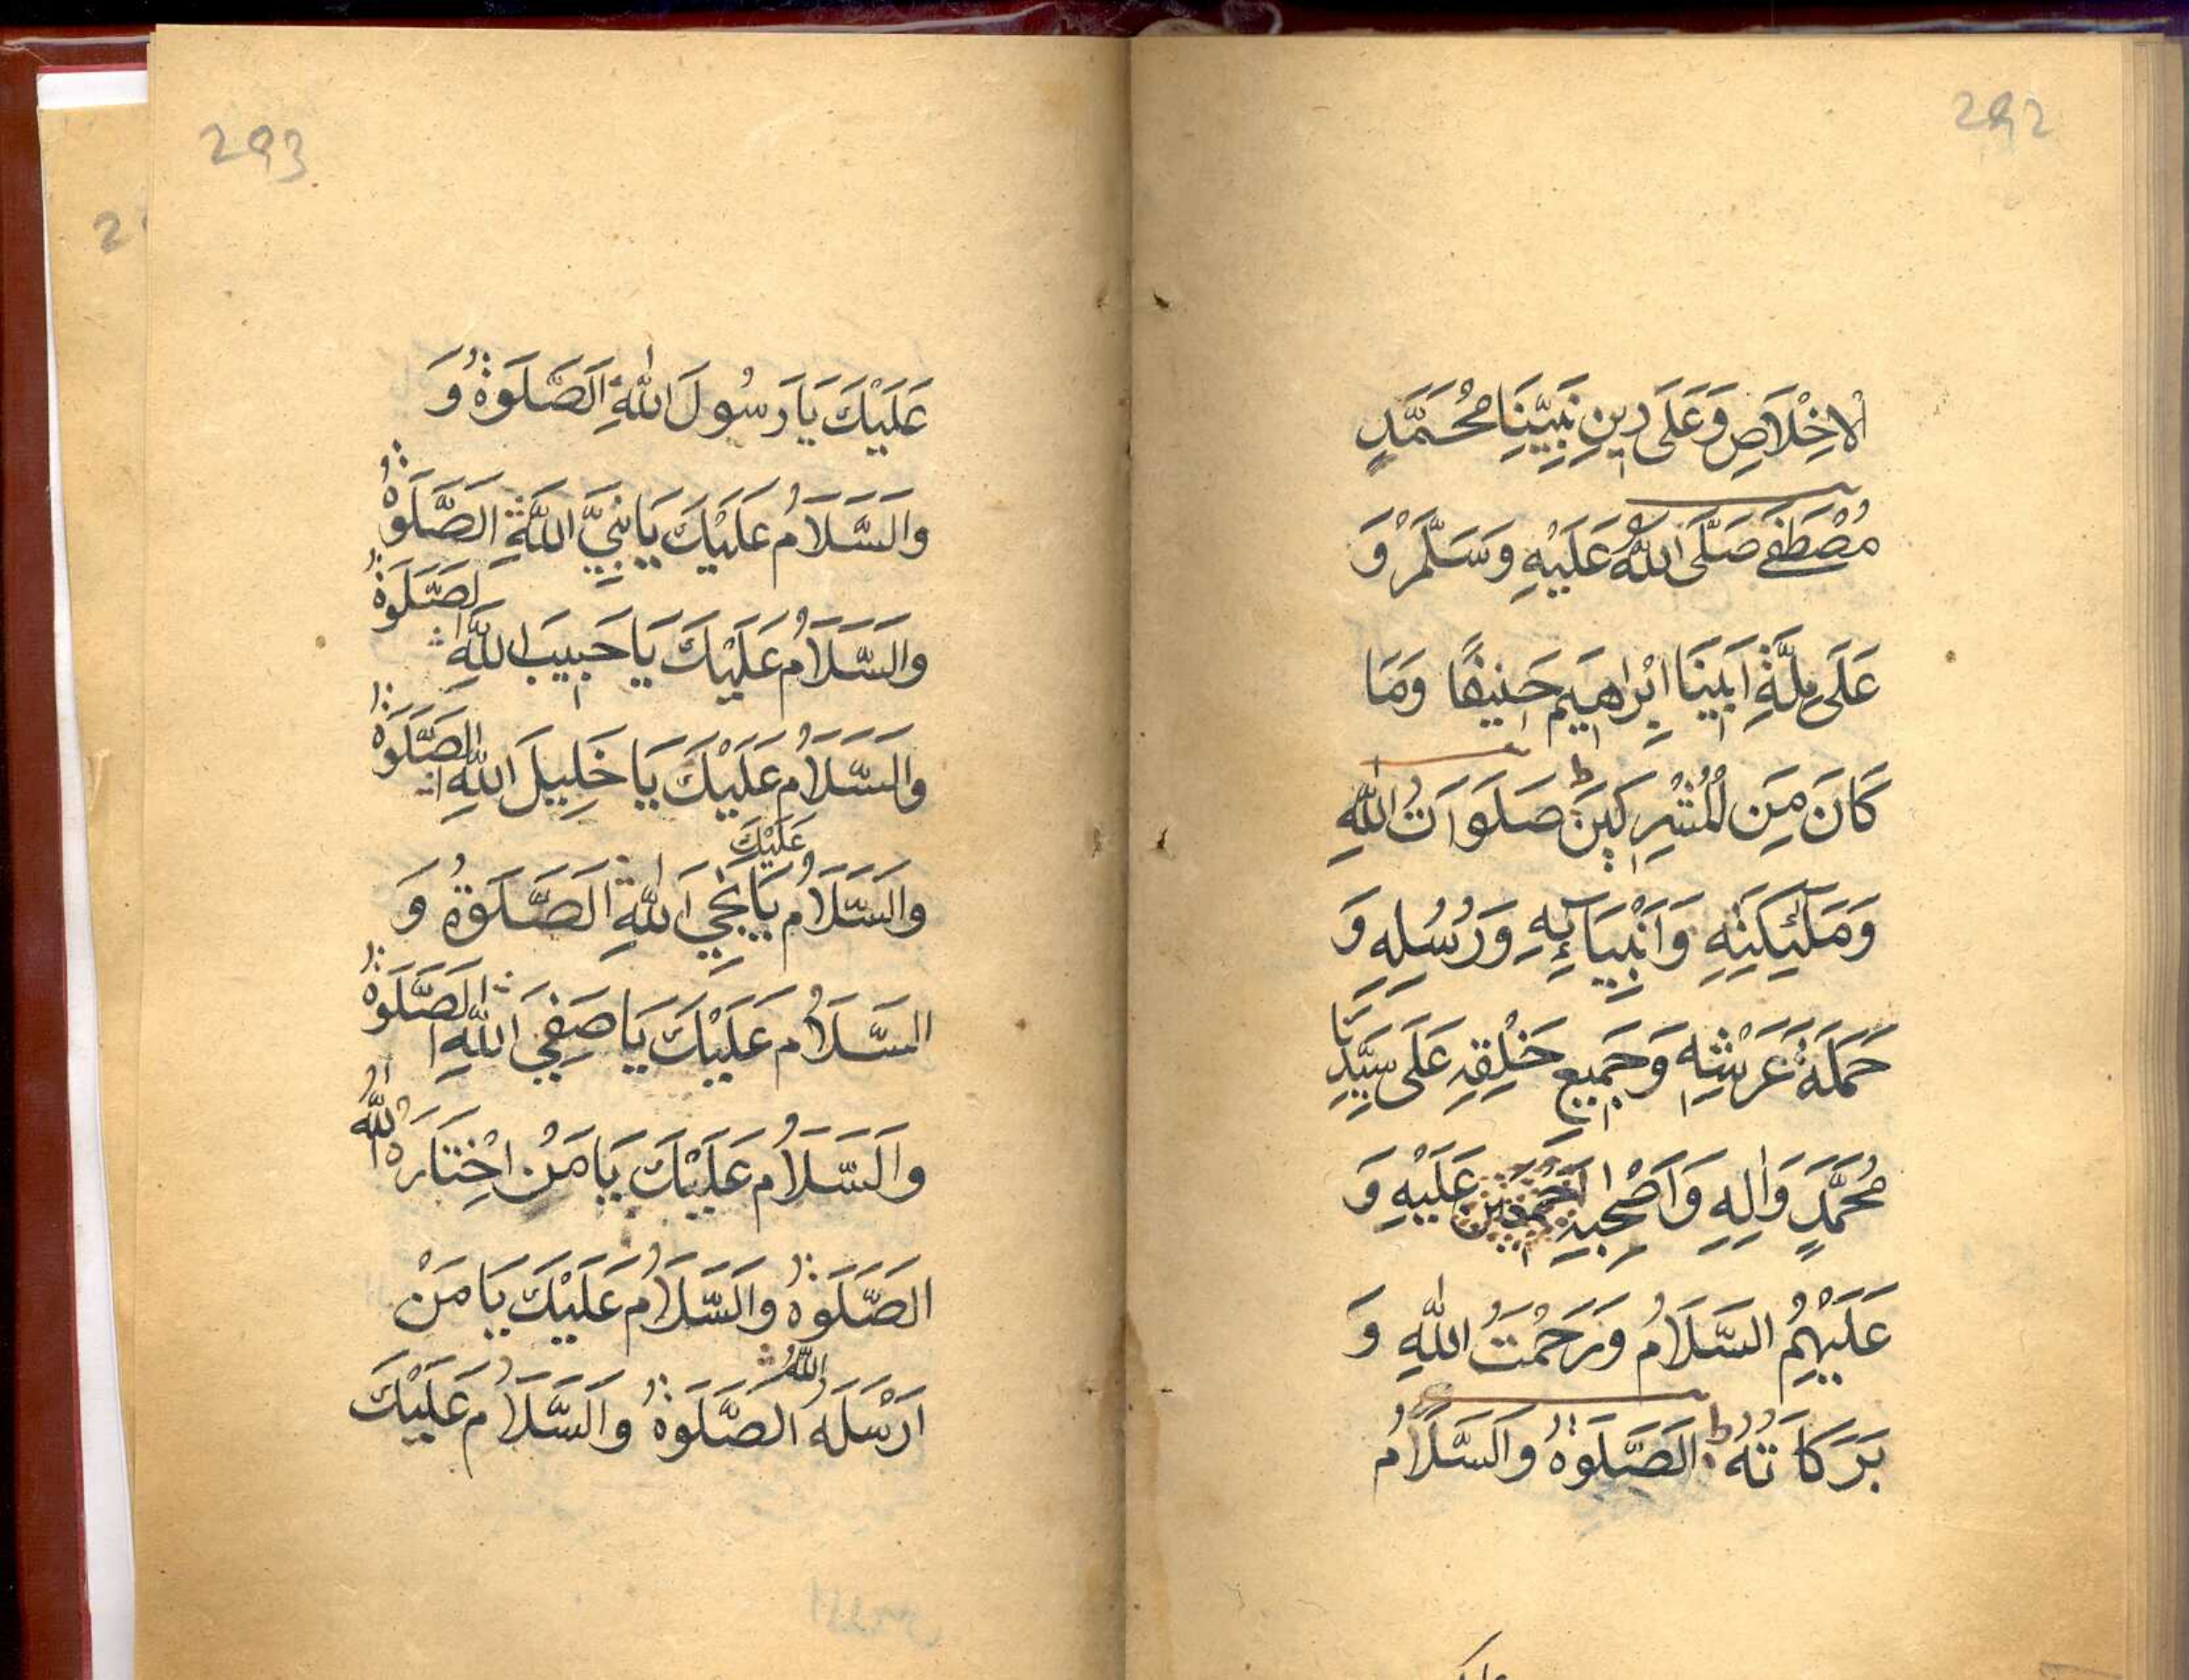 292
الْاِخْلَاصِ وَعَلَى دِينِ نَبِيِّنَا مُحَمَّدٍ
مُصْطَفٰے صَلَّى اللهُ عَلَيْهِ وَسَلَّمَ وَ
عَلَى مِلَّةِ اَبِينَا اِبْرَاهِيمَ حَنِيفًا وَمَا
كَانَ مِنَ الْمُشْرِكِينَ ط صَلَوَاتُ اللهِ
وَمَلٰئِكَتِهِ وَاَنْبِيَائِهِ وَرُسُلِهِ وَ
حَمَلَةِ عَرْشِهِ وَجَمِيعِ خَلْقِهِ عَلَى سَيِّدِنَا
مُحَمَّدٍ وَاٰلِهِ وَاَصْحٰبِهِ اَجْمَعِينَ عَلَيْهِ وَ
عَلَيْهِمُ السَّلَامُ وَرَحْمَتُ اللهِ وَ
بَرَكَاتُهُ ط الصَّلَوٰةُ وَالسَّلَامُ
293
عَلَيْكَ يَا رَسُولَ اللهِ اَلصَّلَوٰةُ وَ
وَالسَّلَامُ عَلَيْكَ يَا نَبِيَّ اللهِ الصَّلَوٰةُ
وَالسَّلَامُ عَلَيْكَ يَا حَبِيبَ اللهِ الصَّلَوٰةُ
وَالسَّلَامُ عَلَيْكَ يَا خَلِيلَ اللهِ الصَّلَوٰةُ
وَالسَّلَامُ عَلَيْكَ يَا نَجِيَ اللهِ الصَّلَوٰةُ وَ
السَّلَامُ عَلَيْكَ يَا صَفِيَ اللهِ الصَّلَوٰةُ
وَالسَّلَامُ عَلَيْكَ يَا مَنْ اخْتَارَهُ اللهُ
الصَّلَوٰةُ وَالسَّلَامُ عَلَيْكَ يَا مَنْ
اَرْسَلَهُ اللهُ الصَّلَوٰةُ وَالسَّلَامُ عَلَيْكَ